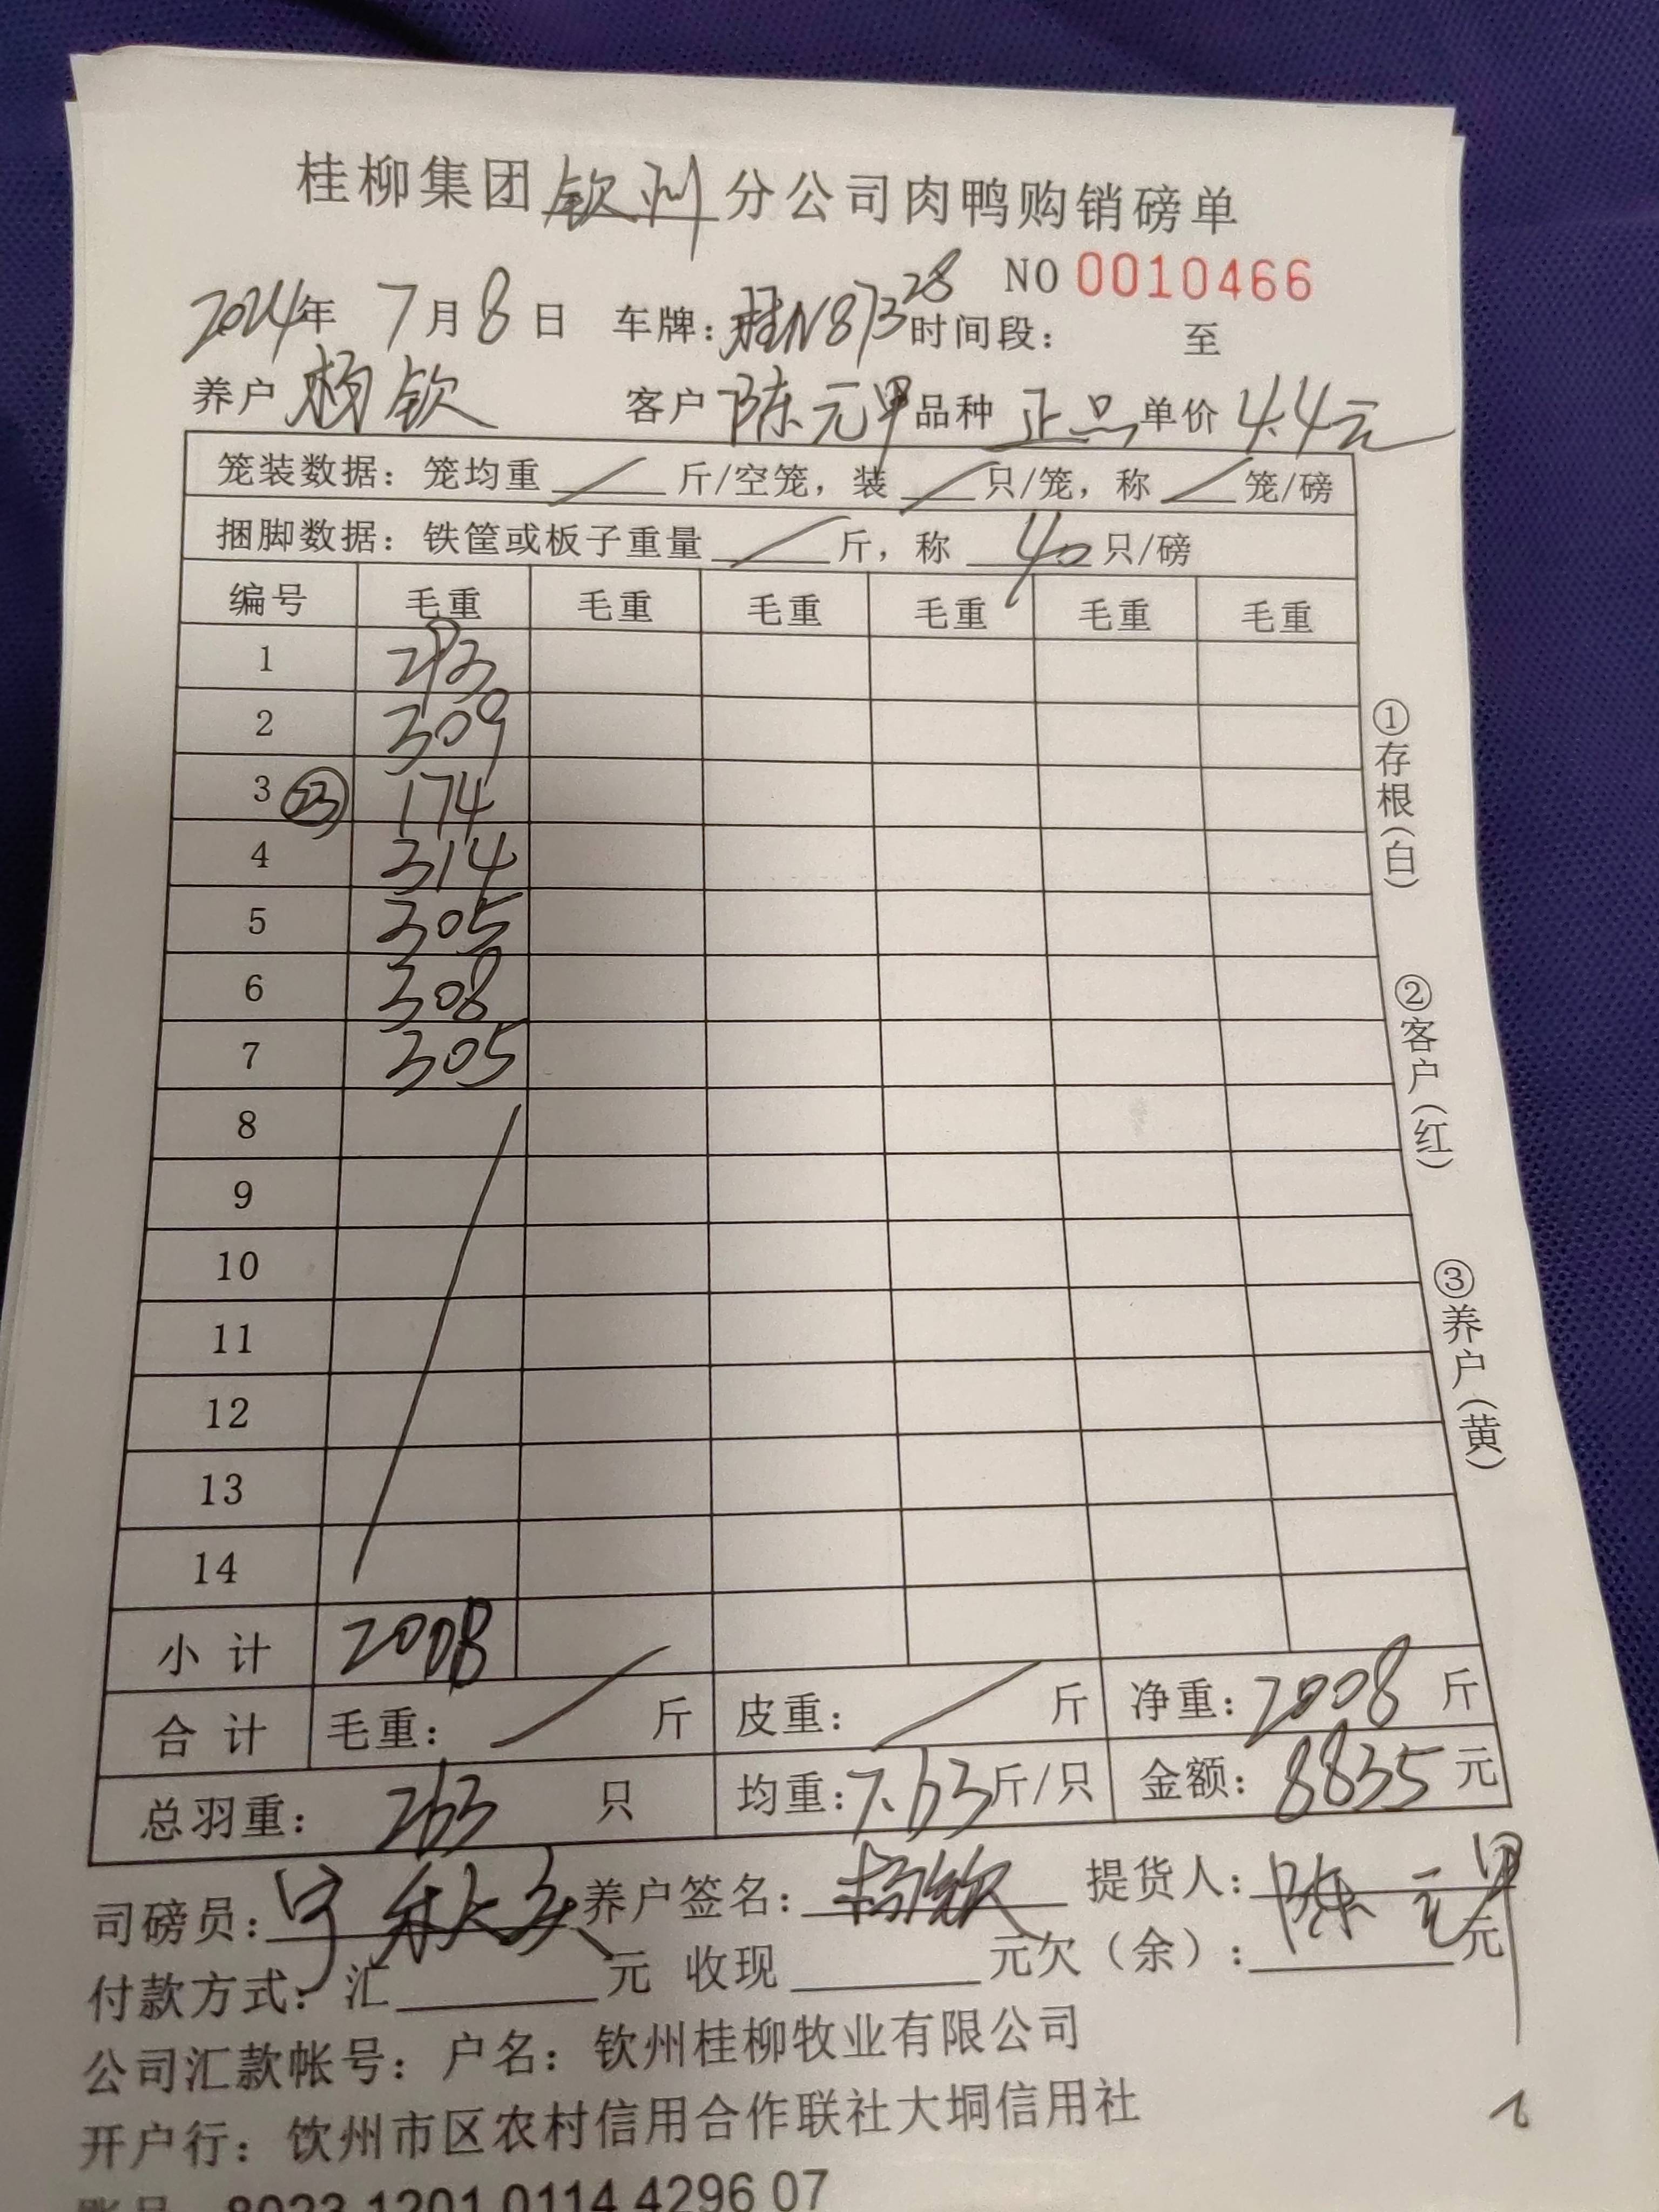 桂柳集团钦州分公司肉鸭购销磅单
NO 0010466
2024年 7月8日 车牌：桂N87328 时间段： 至
养户 杨钦 客户 陈元甲 品种 正品 单价 4.4元
笼装数据：笼均重 / 斤/空笼，装 / 只/笼，称 / 笼/磅
捆脚数据：铁筐或板子重量 / 斤，称 40 只/磅
编号 毛重 毛重 毛重 毛重 毛重 毛重
1 293
2 309
3 ㉓ 174
4 314
5 305
6 308
7 305
8
9
10
11
12
13
14
小计 2008
合计 毛重： / 斤 皮重： / 斤 净重：2008 斤
总羽重： 263 只 均重：7.63斤/只 金额：8835元
①存根（白）
②客户（红）
③养户（黄）
司磅员： 养户签名：杨钦 提货人：陈元甲
付款方式：汇 元 收现 元欠（余）： 元
公司汇款帐号：户名：钦州桂柳牧业有限公司
开户行：饮州市区农村信用合作联社大垌信用社
账号 8023 1201 0114 4296 07